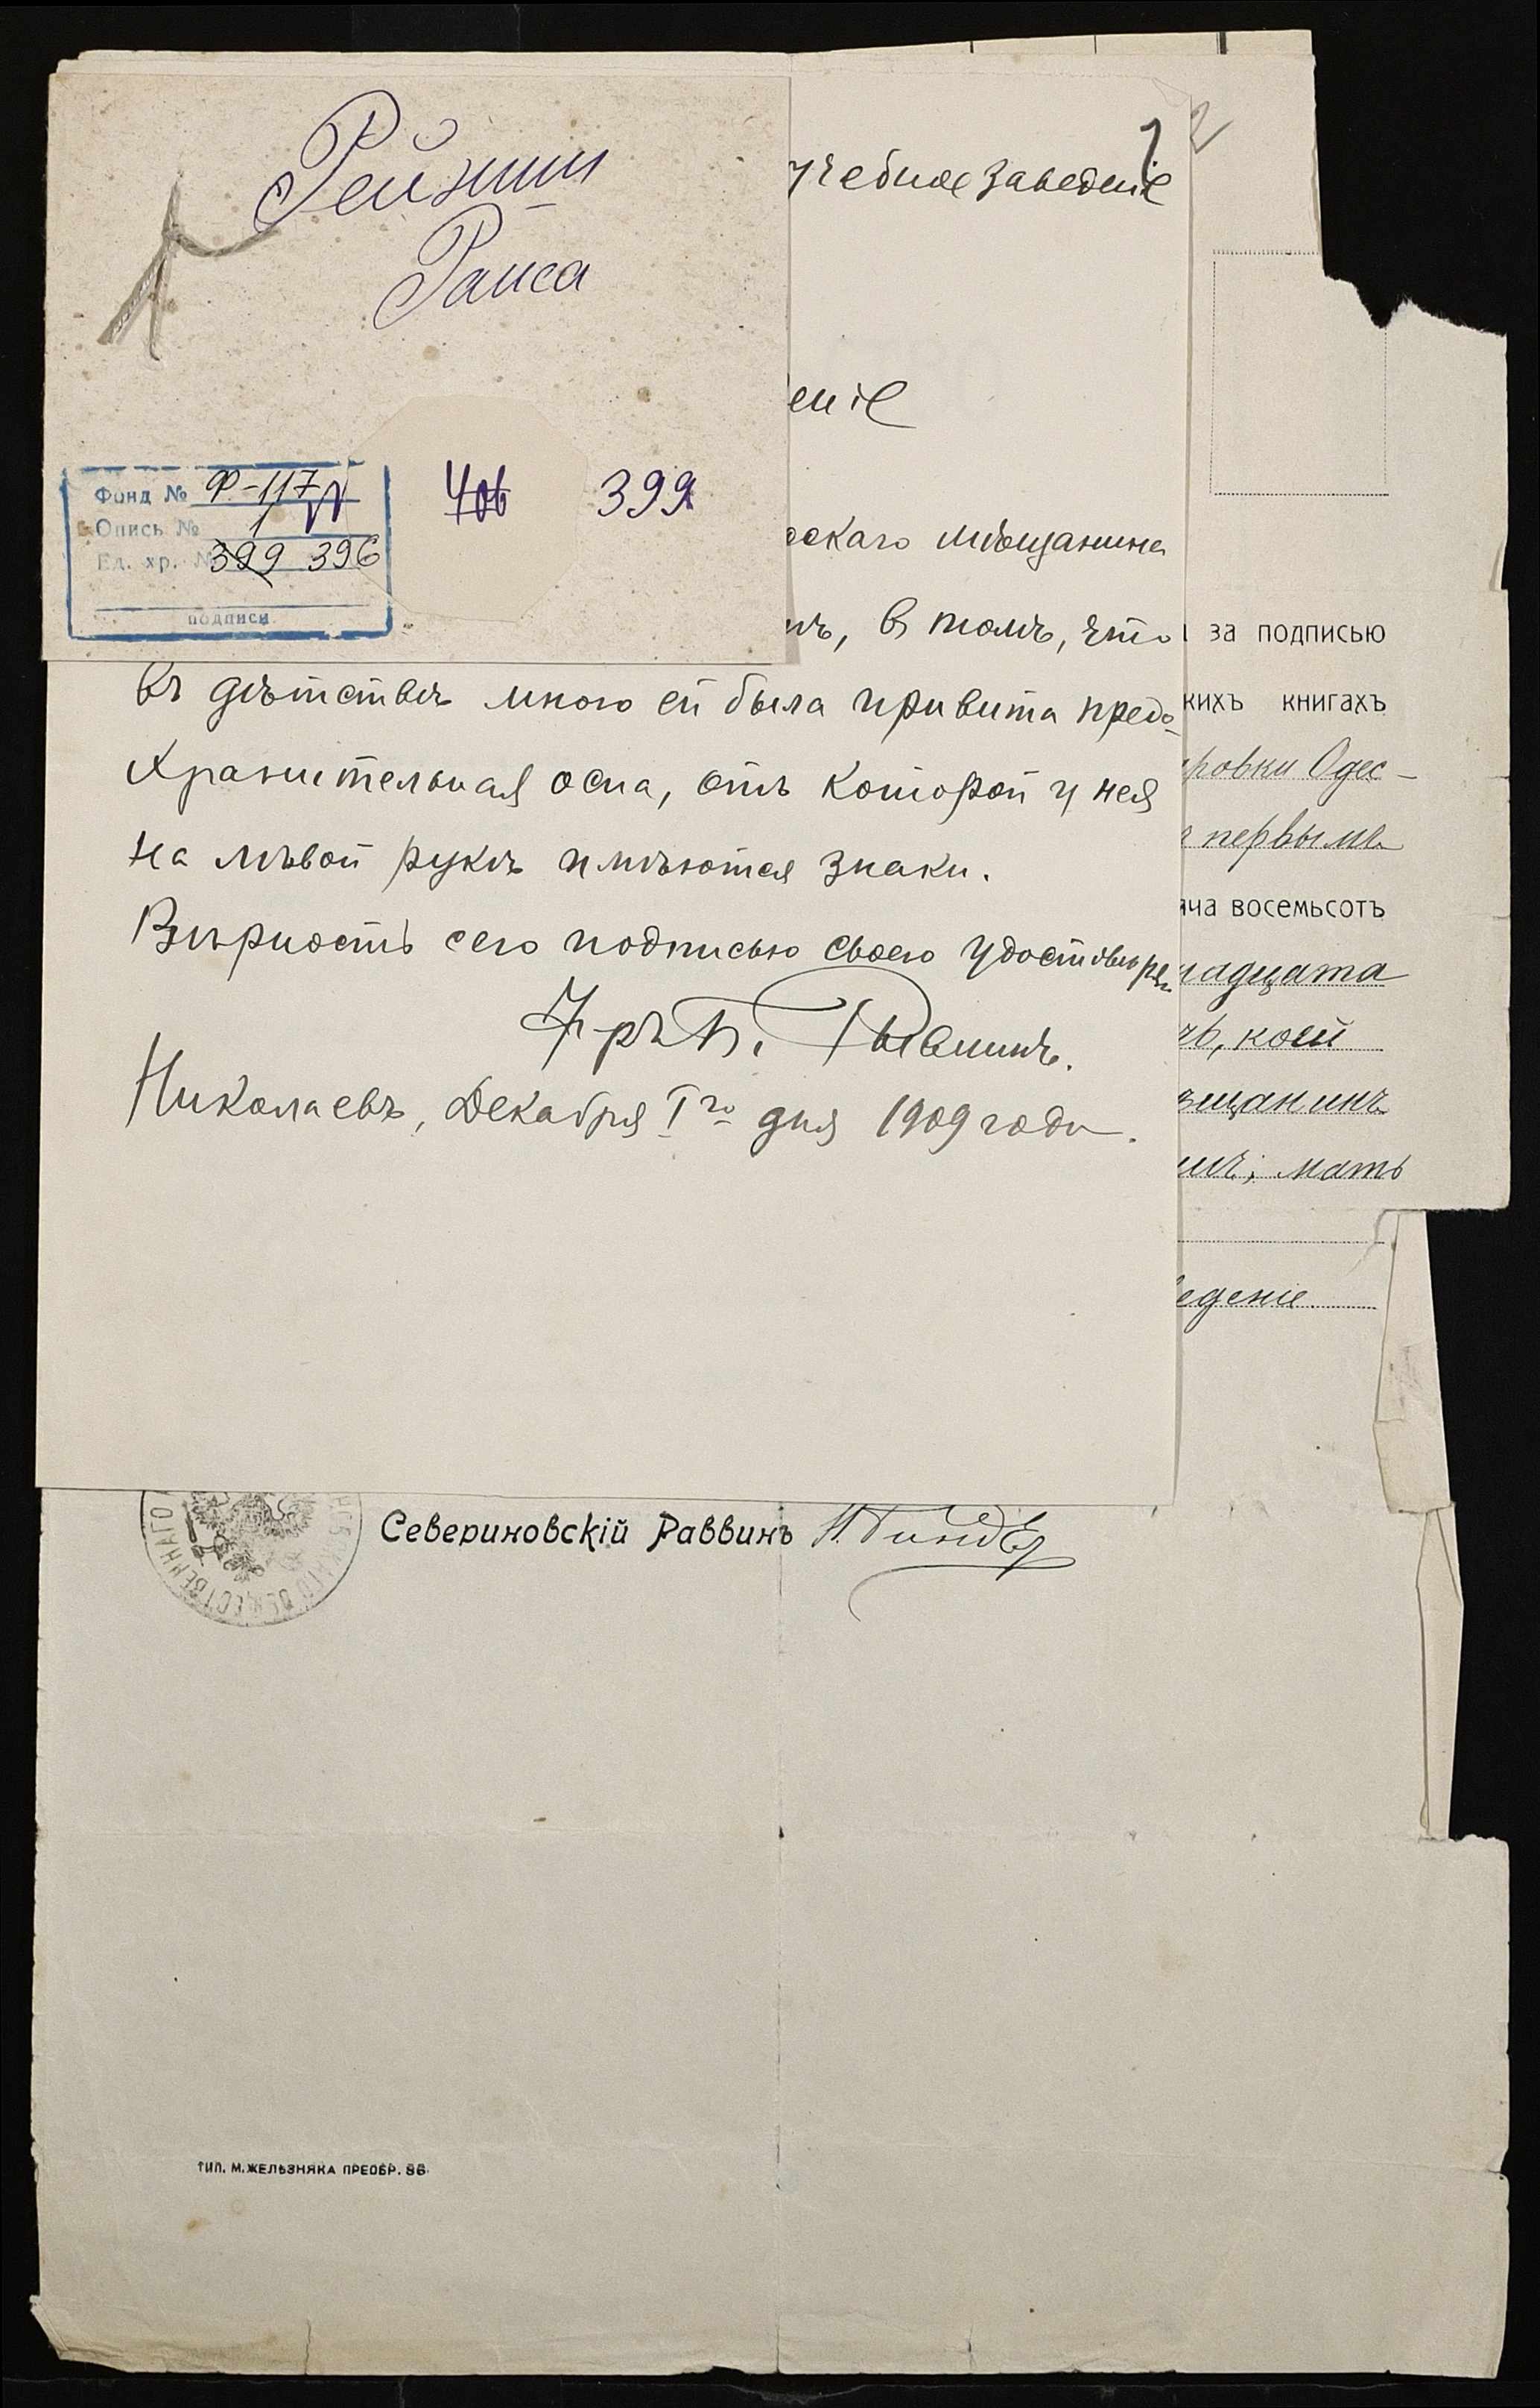 Рейзин
Раиса
Фонд № Ф-117
Опись № 1
Ед. хр. № 399 396
подписи
406 399
2
учебное заведенiе
енiе
скаго мѣщанина
въ томъ, что
въ дѣтствѣ мною ей была привита предо-
хранительная оспа, отъ которой у нея
на лѣвой рукѣ имѣются знаки.
Вѣрность сего подписью своею удостовѣряю
Николаевъ, Декабря 1го дня 1909 года.
за подписью
кихъ книгахъ
ровки Одес-
первымъ
яча восемьсотъ
надцата
коей
ѣщанинъ
мать
еденiе
Севериновскiй Раввинъ
ТИП. М. ЖЕЛѢЗНЯКА ПРЕОБР. 86.